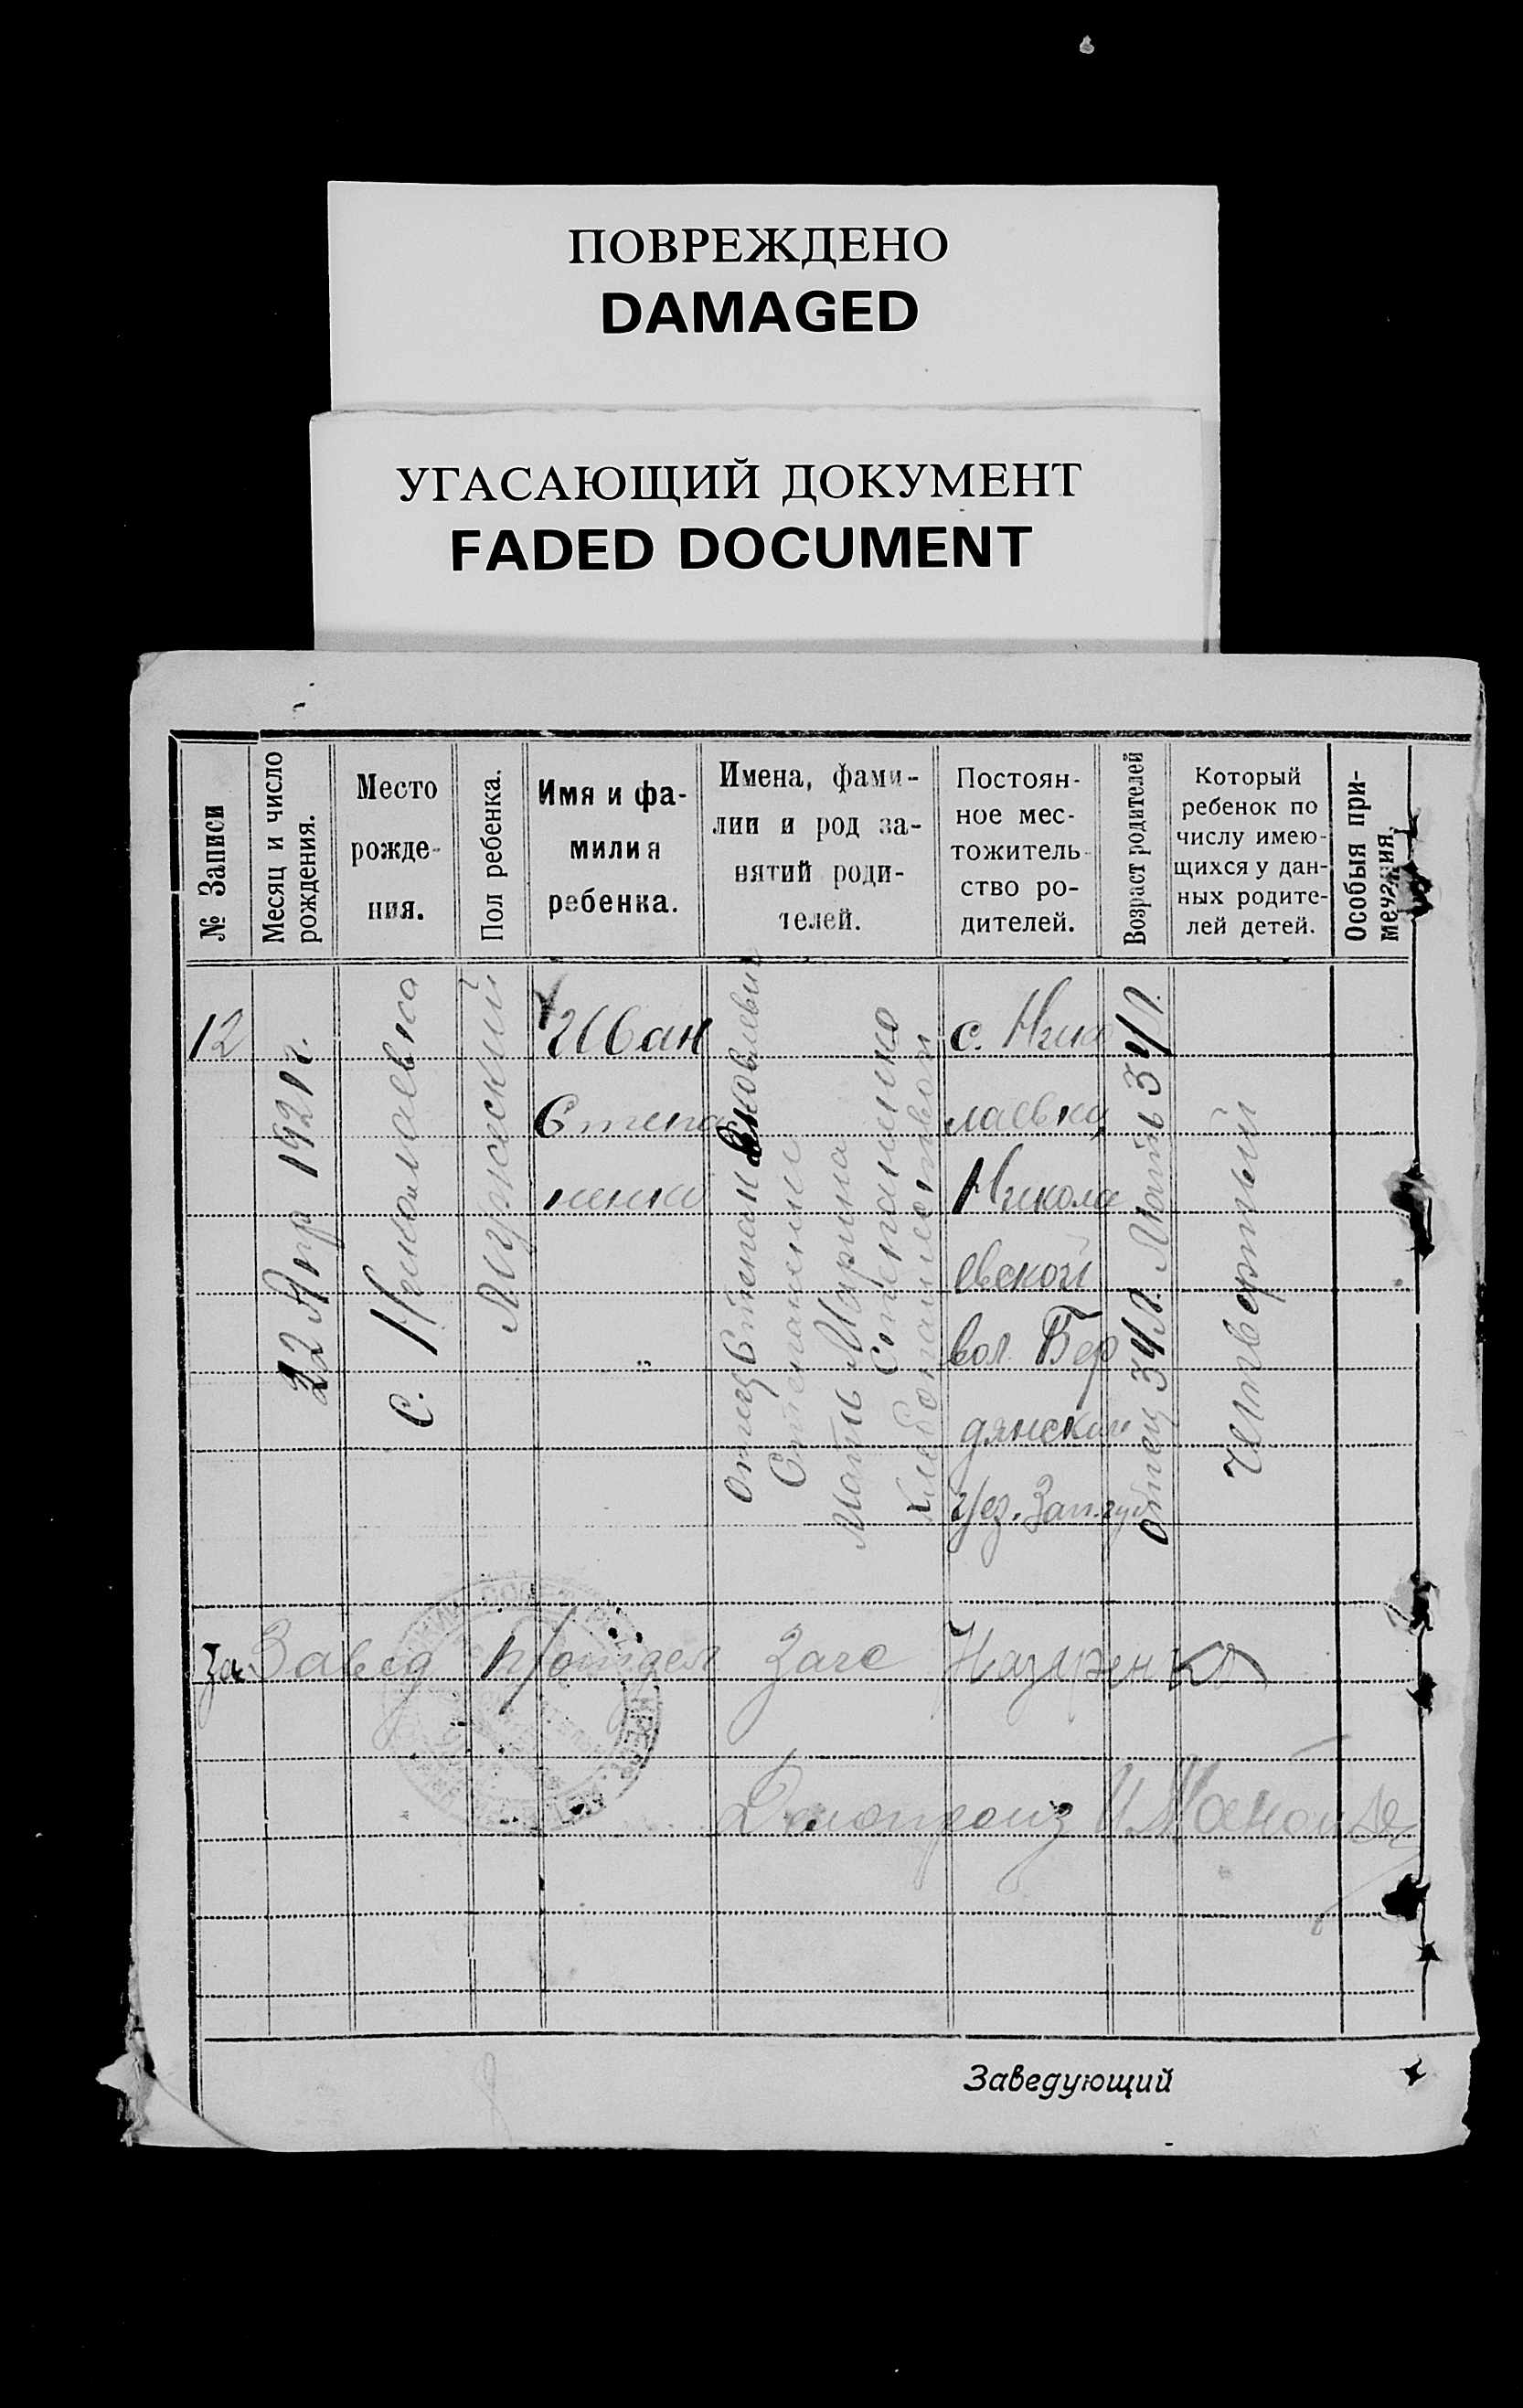 ПОВРЕЖДЕНО
DAMAGED
УГАСАЮЩИЙ ДОКУМЕНТ
FADED DOCUMENT
№ Записи
Месяц и число
рождения.
Место
рожде-
ния.
Пол ребенка.
Имя и фа-
милия
ребенка.
Имена, фами-
лии и род за-
нятий роди-
телей.
Постоян-
ное мес-
тожитель-
ство ро-
дителей.
Возраст родителей
Который
ребенок по
числу имею-
щихся у дан-
ных родите-
лей детей.
Особыя при-
мечания.
12
22 Апр 1921 г.
с. Николаевка
Мужеский
Иван
Степа
ненко
Отец Степан Яковлевич
Степаненко
Мать Марина
Степаненко
Хлебопашеством
с. Нико
лаевка
Никола
евской
вол. Бер
дянской
уез. Зап. губ
отец 34 л. Мать 34 л.
Четвертый
За Завед п/отдел Загс
Делопроиз
Заведующий